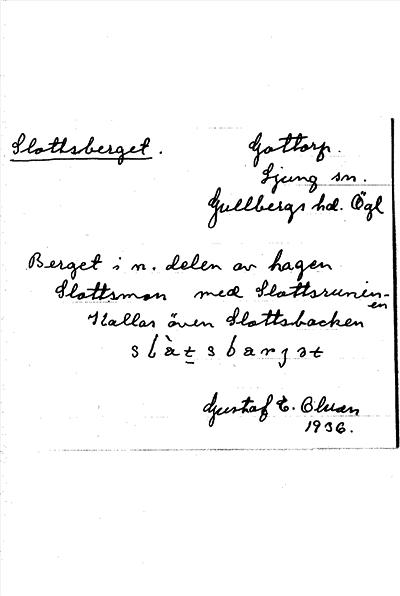 Slottsberget. Gottorp.
Ljung sn.
Gullbergs hd. Ögl
Berget i n. delen av hagen
Slottsmon med Slottsruninen-
en
Kallas även Slottsbacken
slàtsbarjət
Gustaf E.
1936.